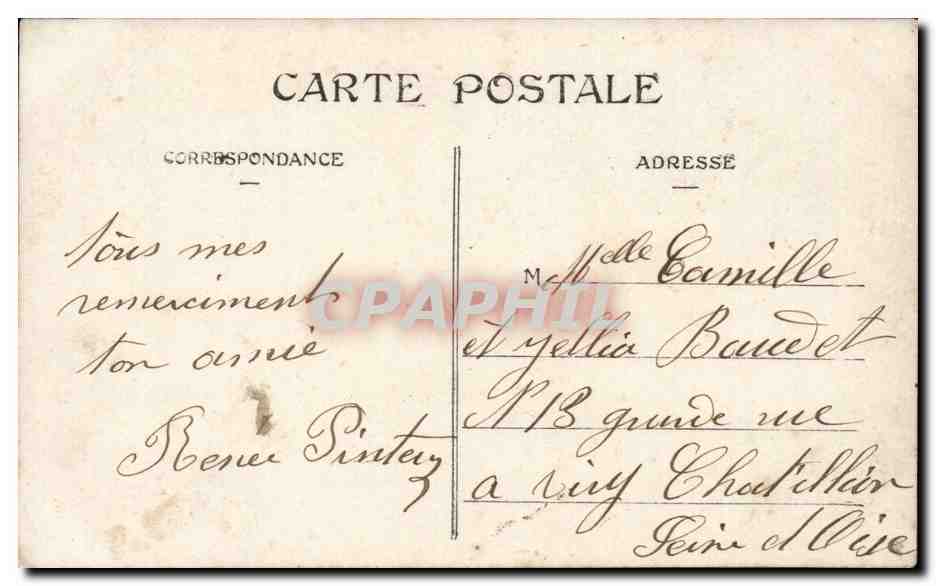 CARTE POSTALE
CORRESPONDANCE
ADRESSE
tous mes
remerciments
ton amie
Renee Pinteu
M Melle Camille
et yellia Baudet
N 13 grande rue
a viry Chatillion
Seine et Oise
CPAPHIL